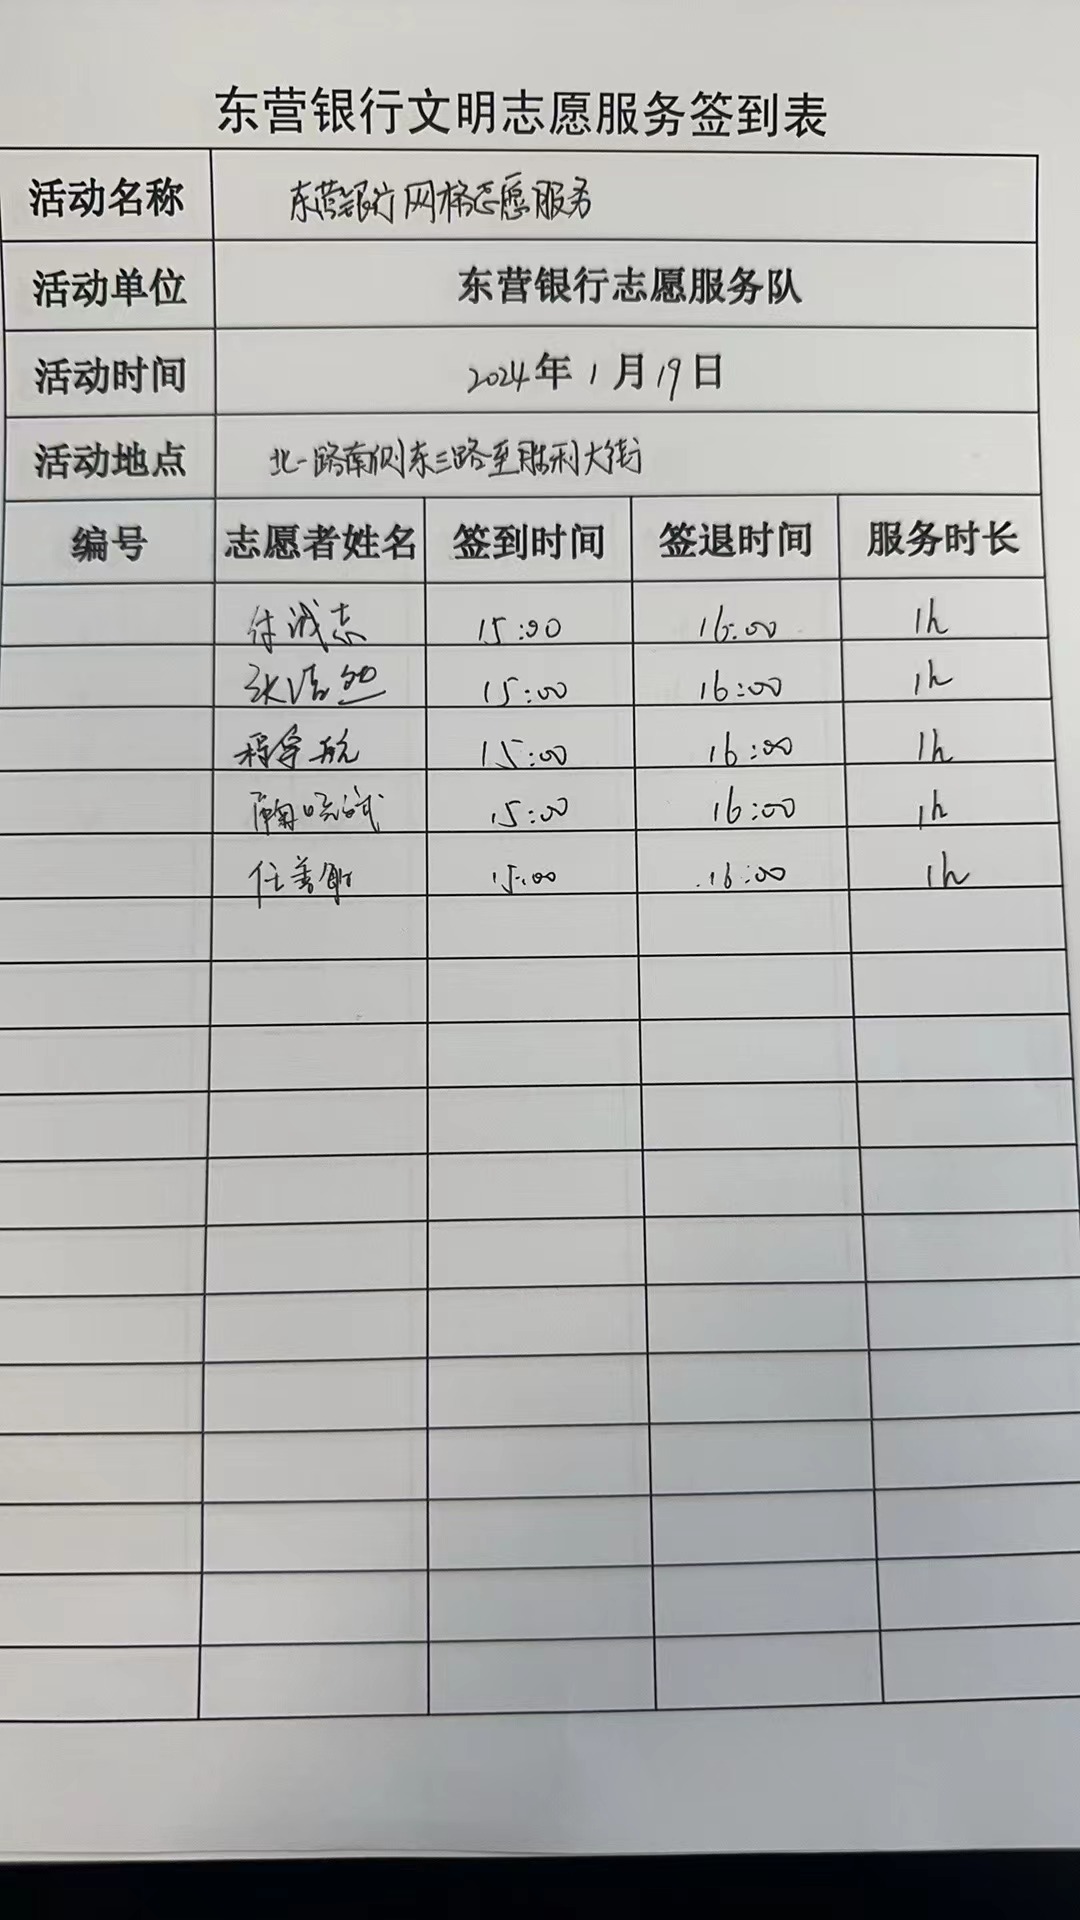 东营银行文明志愿服务签到表
活动名称 东营银行网格志愿服务
活动单位 东营银行志愿服务队
活动时间 2024年1月19日
活动地点 北一路南侧东三路至胜利大街
编号 志愿者姓名 签到时间 签退时间 服务时长
付诚志 15:00 16:00 1h
张浩然 15:00 16:00 1h
程宇航 15:00 16:00 1h
15:00 16:00 1h
任善 15:00 16:00 1h